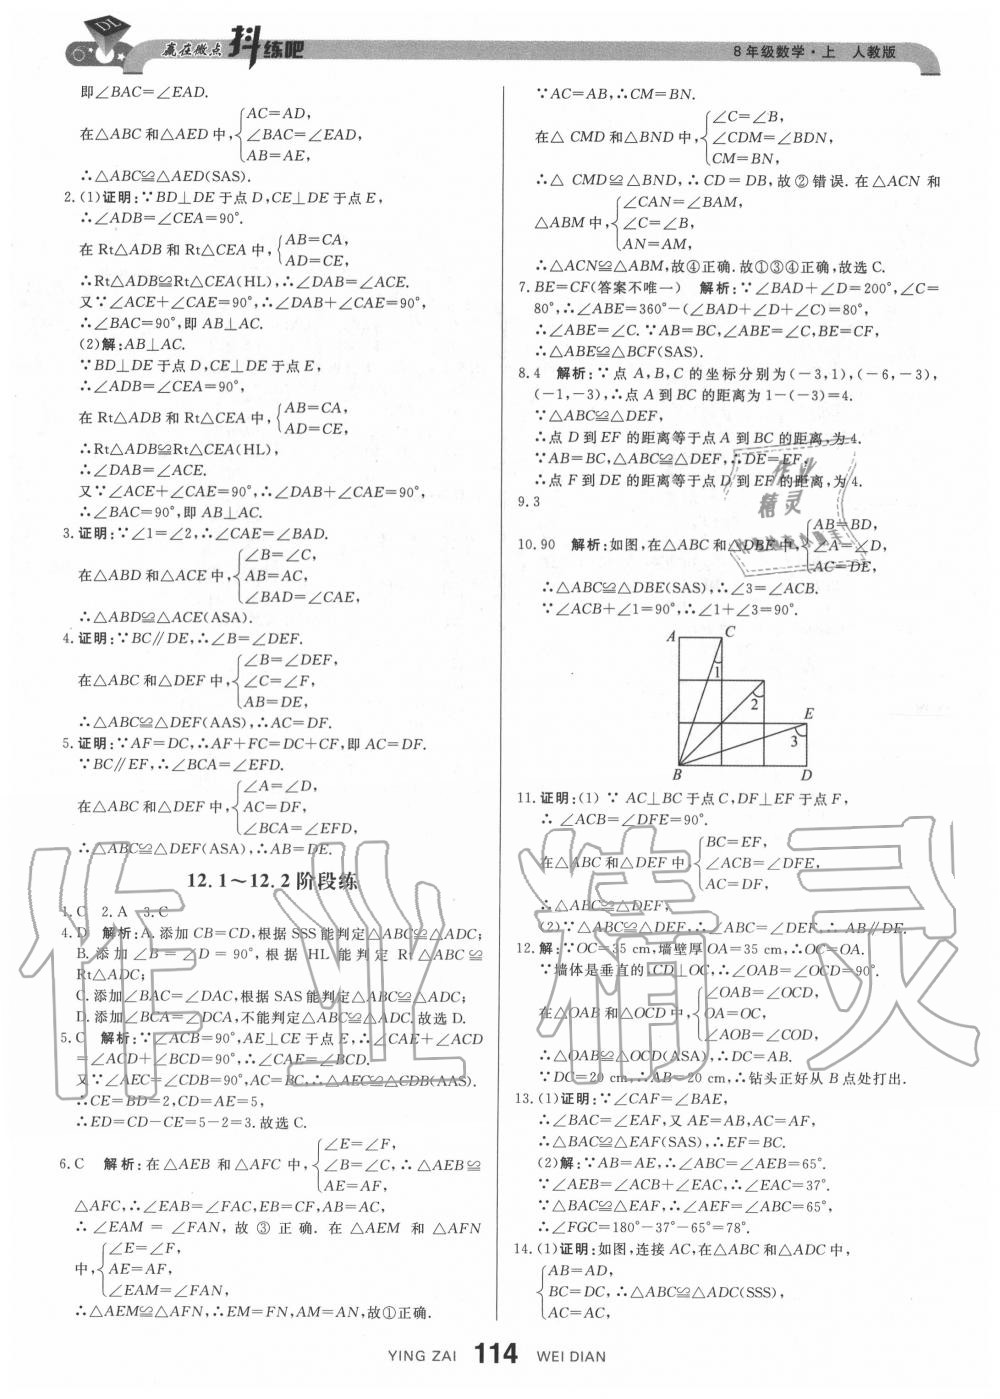 赢在微点 抖练吧
8年级数学·上 人教版
即∠BAC=∠EAD.
在△ABC和△AED中,{AC=AD,
∠BAC=∠EAD,
AB=AE,
∴△ABC≌△AED(SAS).
2.(1)证明:∵BD⊥DE于点D,CE⊥DE于点E,
∴∠ADB=∠CEA=90°.
在Rt△ADB和Rt△CEA中,{AB=CA,
AD=CE,
∴Rt△ADB≌Rt△CEA(HL),∴∠DAB=∠ACE.
又∵∠ACE+∠CAE=90°,∴∠DAB+∠CAE=90°,
∴∠BAC=90°,即AB⊥AC.
(2)解:AB⊥AC.
∵BD⊥DE于点D,CE⊥DE于点E,
∴∠ADB=∠CEA=90°,
在Rt△ADB和Rt△CEA中,{AB=CA,
AD=CE,
∴Rt△ADB≌Rt△CEA(HL),
∴∠DAB=∠ACE.
又∵∠ACE+∠CAE=90°,∴∠DAB+∠CAE=90°,
∴∠BAC=90°,即AB⊥AC.
3.证明:∵∠1=∠2,∴∠CAE=∠BAD.
在△ABD和△ACE中,{∠B=∠C,
AB=AC,
∠BAD=∠CAE,
∴△ABD≌△ACE(ASA).
4.证明:∵BC∥DE,∴∠B=∠DEF.
在△ABC和△DEF中,{∠B=∠DEF,
∠C=∠F,
AB=DE,
∴△ABC≌△DEF(AAS),∴AC=DF.
5.证明:∵AF=DC,∴AF+FC=DC+CF,即AC=DF.
∵BC∥EF,∴∠BCA=∠EFD.
在△ABC和△DEF中,{∠A=∠D,
AC=DF,
∠BCA=∠EFD,
∴△ABC≌△DEF(ASA),∴AB=DE.
12.1～12.2阶段练
1.C 2.A 3.C
4.D 解析:A.添加CB=CD,根据SSS能判定△ABC≌△ADC;
B.添加∠B=∠D=90°,根据HL能判定Rt△ABC≌
Rt△ADC;
C.添加∠BAC=∠DAC,根据SAS能判定△ABC≌△ADC;
D.添加∠BCA=∠DCA,不能判定△ABC≌△ADC.故选D.
5.C 解析:∵∠ACB=90°,AE⊥CE于点E,∴∠CAE+∠ACD
=∠ACD+∠BCD=90°,∴∠CAE=∠BCD.
又∵∠AEC=∠CDB=90°,AC=BC,∴△AEC≌△CDB(AAS).
∴CE=BD=2,CD=AE=5,
∴ED=CD-CE=5-2=3.故选C.
6.C 解析:在△AEB和△AFC中,{∠E=∠F,
∠B=∠C,∴△AEB≌
AE=AF,
△AFC,∴∠EAB=∠FAC,EB=CF,AB=AC,
∴∠EAM=∠FAN,故③正确.在△AEM和△AFN
中,{∠E=∠F,
AE=AF,
∠EAM=∠FAN,
∴△AEM≌△AFN,∴EM=FN,AM=AN,故①正确.
∵AC=AB,∴CM=BN.
在△CMD和△BND中,{∠C=∠B,
∠CDM=∠BDN,
CM=BN,
∴△CMD≌△BND,∴CD=DB,故②错误.在△ACN和
△ABM中,{∠CAN=∠BAM,
∠C=∠B,
AN=AM,
∴△ACN≌△ABM,故④正确.故①③④正确,故选C.
7.BE=CF(答案不唯一) 解析:∵∠BAD+∠D=200°,∠C=
80°,∴∠ABE=360°-(∠BAD+∠D+∠C)=80°,
∴∠ABE=∠C.∵AB=BC,∠ABE=∠C,BE=CF,
∴△ABE≌△BCF(SAS).
8.4 解析:∵点A,B,C的坐标分别为(-3,1),(-6,-3),
(-1,-3),∴点A到BC的距离为1-(-3)=4.
∵△ABC≌△DEF,
∴点D到EF的距离等于点A到BC的距离,为4.
∵AB=BC,△ABC≌△DEF,∴DE=EF.
∴点F到DE的距离等于点D到EF的距离,为4.
9.3
10.90 解析:如图,在△ABC和△DBE中,{AB=BD,
∠A=∠D,
AC=DE,
∴△ABC≌△DBE(SAS),∴∠3=∠ACB.
∵∠ACB+∠1=90°,∴∠1+∠3=90°.
A C
1
2
E
3
B D
11.证明:(1)∵AC⊥BC于点C,DF⊥EF于点F,
∴∠ACB=∠DFE=90°.
在△ABC和△DEF中,{BC=EF,
∠ACB=∠DFE,
AC=DF,
∴△ABC≌△DEF,
(2)∵△ABC≌△DEF,∴∠ABC=∠DEF,∴AB∥DE.
12.解:∵OC=35 cm,墙壁厚OA=35 cm,∴OC=OA.
∵墙体是垂直的,CD⊥OC,∴∠OAB=∠OCD=90°.
在△OAB和△OCD中,{∠OAB=∠OCD,
OA=OC,
∠AOB=∠COD,
∴△OAB≌△OCD(ASA),∴DC=AB.
∵DC=20 cm,∴AB=20 cm,∴钻头正好从B点处打出.
13.(1)证明:∵∠CAF=∠BAE,
∴∠BAC=∠EAF,又AE=AB,AC=AF,
∴△BAC≌△EAF(SAS),∴EF=BC.
(2)解:∵AB=AE,∴∠ABC=∠AEB=65°.
∵∠AEB=∠ACB+∠EAC,∴∠EAC=37°.
∵△BAC≌△EAF,∴∠AEF=∠ABC=65°,
∴∠FGC=180°-37°-65°=78°.
14.(1)证明:如图,连接AC,在△ABC和△ADC中,
{AB=AD,
BC=DC,∴△ABC≌△ADC(SSS),
AC=AC,
YING ZAI 114 WEI DIAN
作业精灵